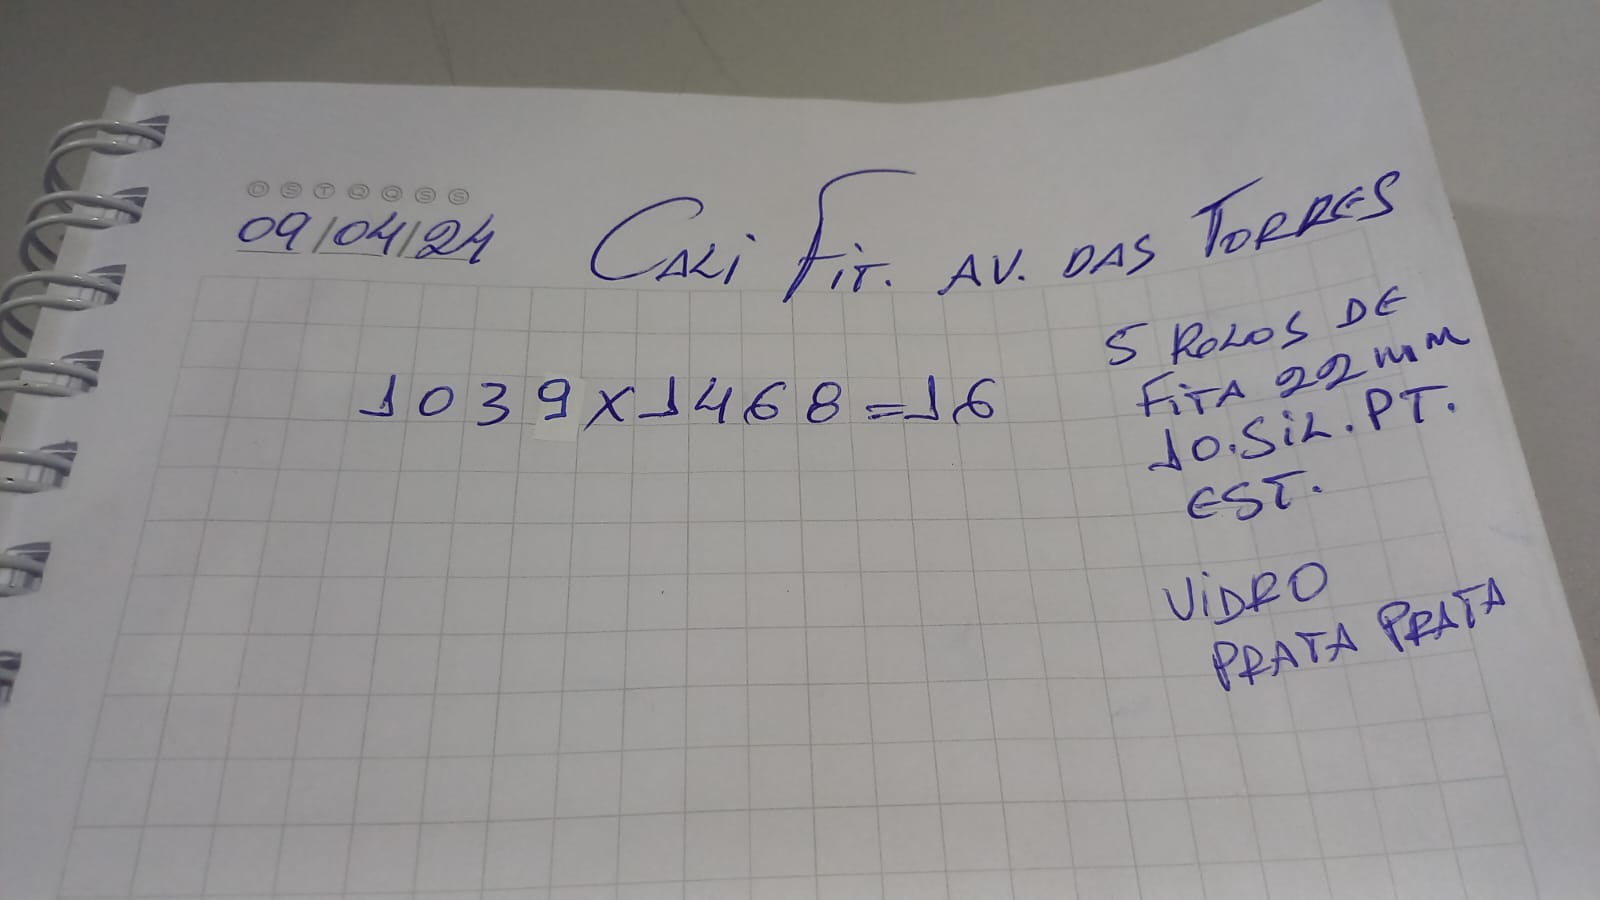 D S T Q Q S S
09/04/24
CALI FIT. AV. DAS TORRES
1039x1468=16
5 ROLOS DE
FITA 22mm
10.SIL.PT.
EST.
VIDRO
PRATA PRATA